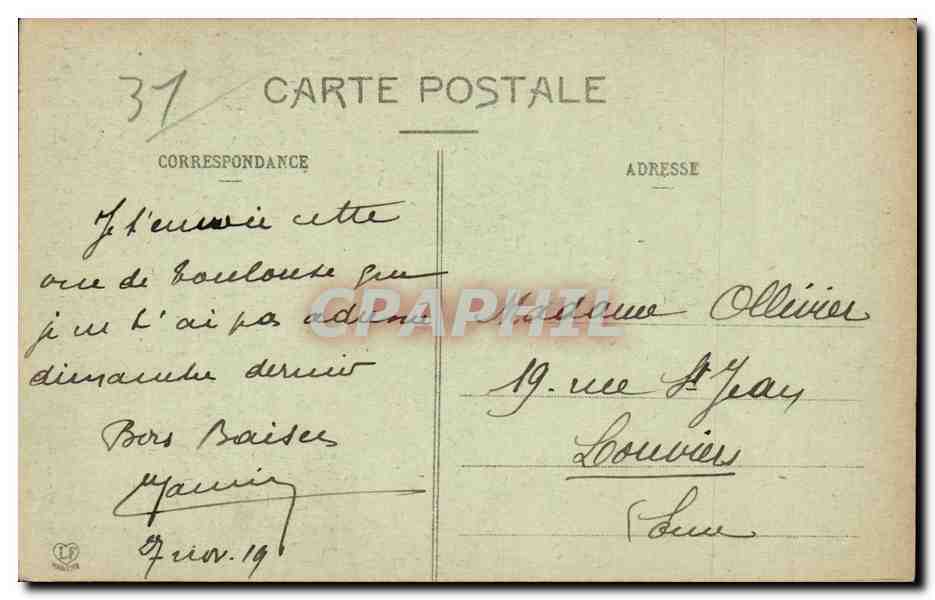 31
CARTE POSTALE
CORRESPONDANCE
ADRESSE
Je t'envoie cette
vue de Toulouse que
je ne t'ai pas adressé
dimanche dernier
Bons Baisers
7 nov. 19
Madame Ollivier
19. rue St Jean
Louviers
Eure
CARTAPHIL
LF